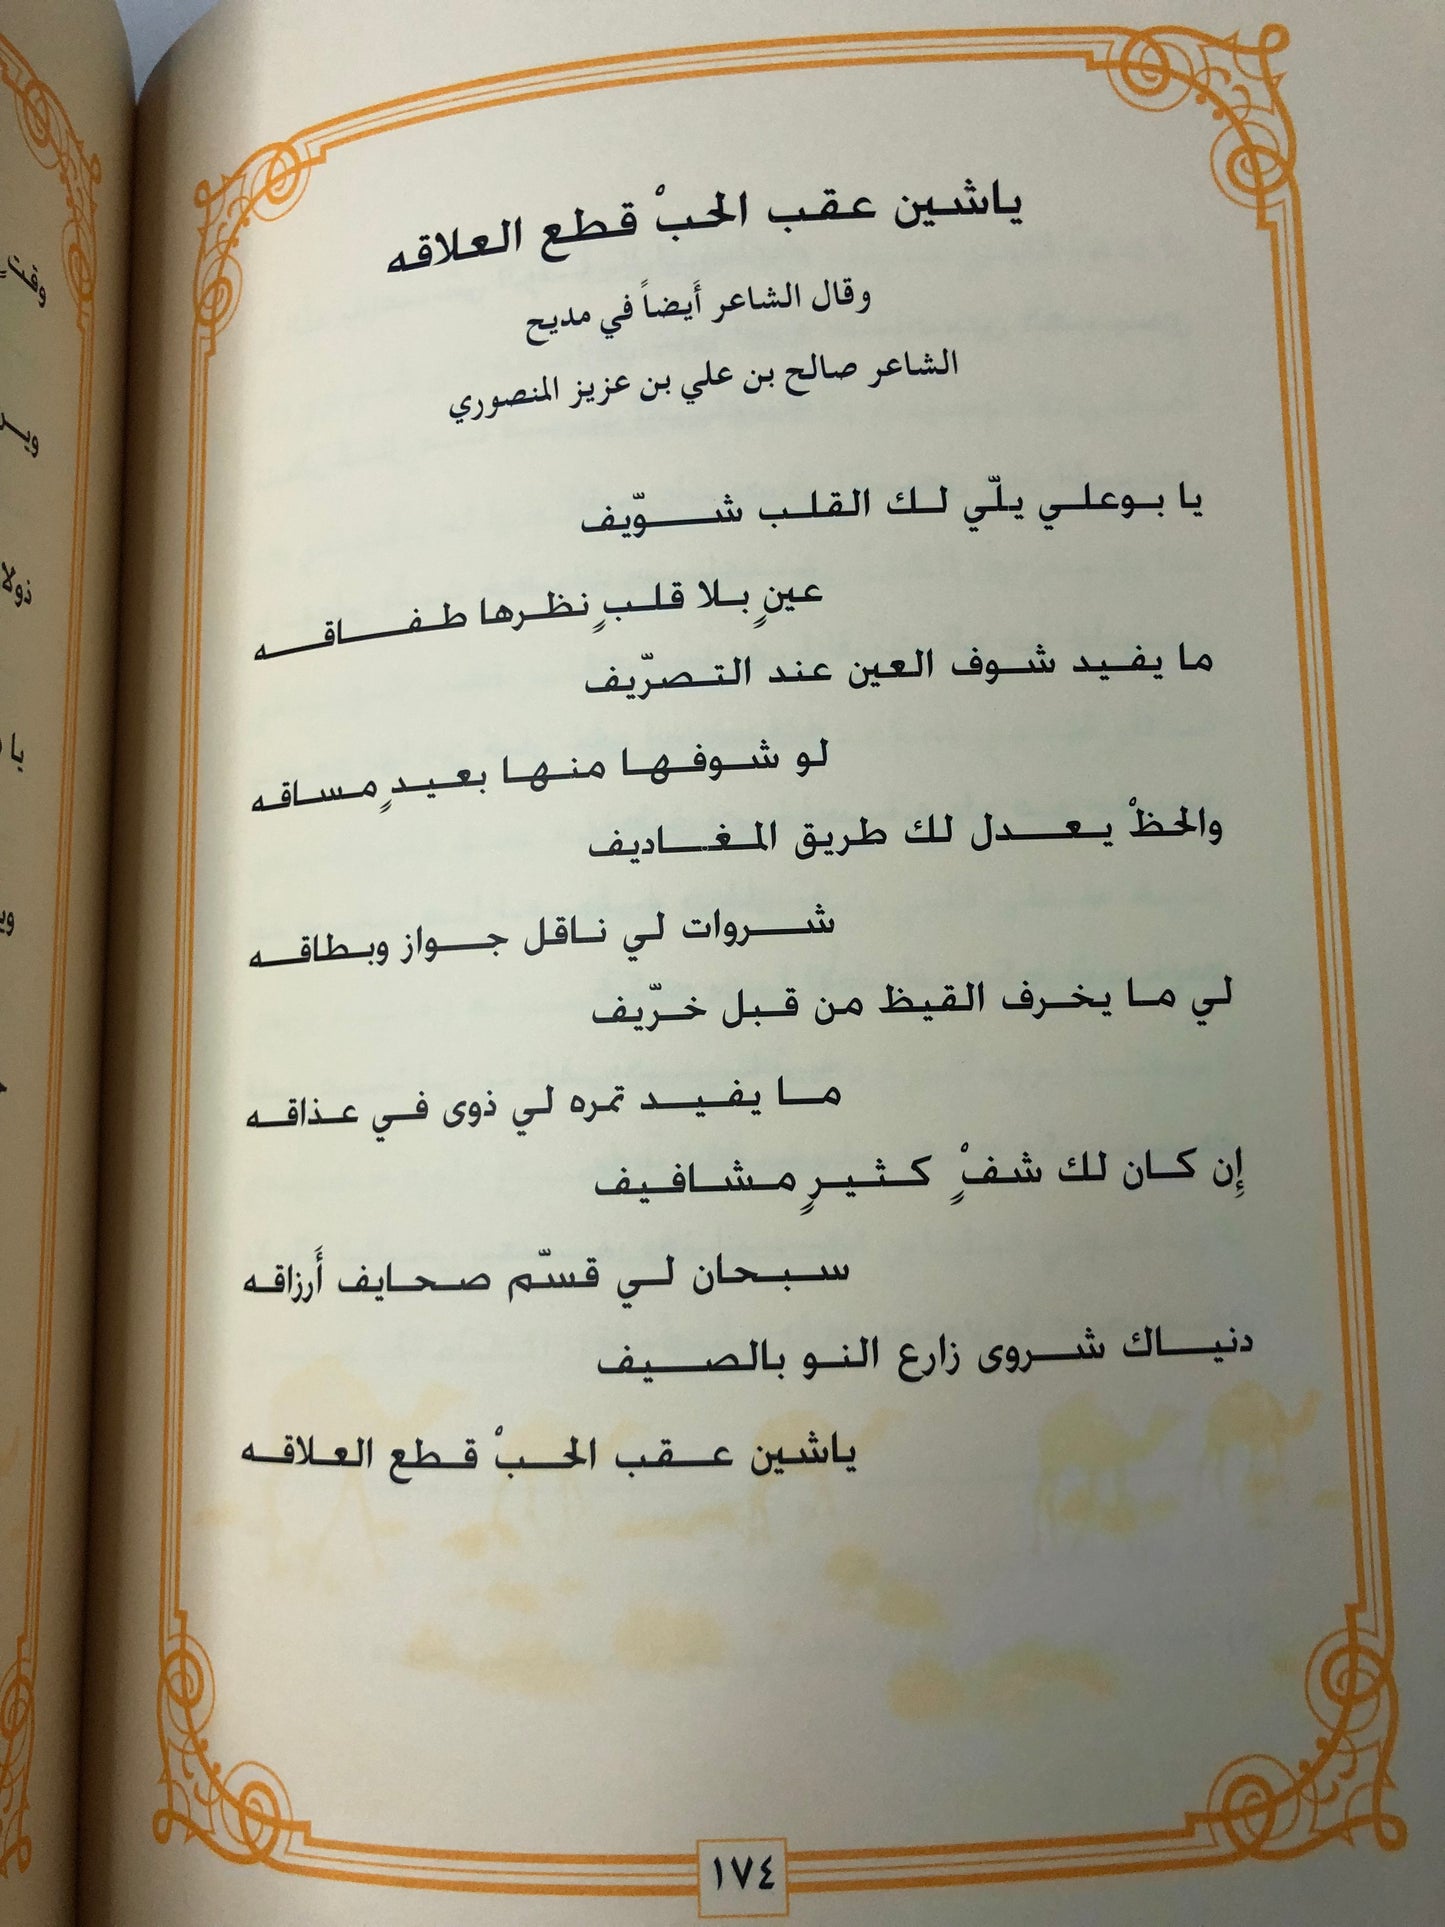 ياشين عقب الحبْ قطع العلاقه
وقال الشاعر أَيضاً في مديح
الشاعر صالح بن علي بن عزيز المنصوري
يا بوعلي يلّي لك القلب شوّيف
عينٍ بلا قلبٍ نظرها طفاقه
ما يفيد شوف العين عند التصرّيف
لو شوفها منها بعيدٍ مساقه
والحظْ يعدل لك طريق المغاديف
شروات لي ناقل جواز وبطاقه
لي ما يخرف القيظ من قبل خرّيف
ما يفيد تمره لي ذوى في عذاقه
إِن كان لك شفْ ٍ كثيرٍ مشافيف
سبحان لي قسّم صحايف أَرزاقه
دنياك شروى زارع النو بالصيف
ياشين عقب الحبْ قطع العلاقه
١٧٤
وقتٍ
وير
ذولا
يا
وي